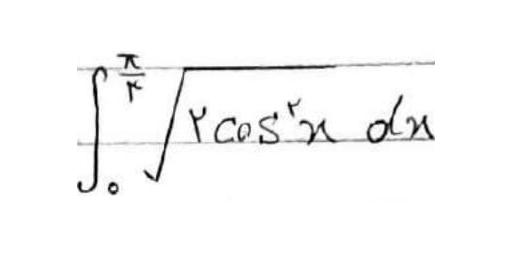 ∫₀^(π/۲) √(۲cos^۲x) dx